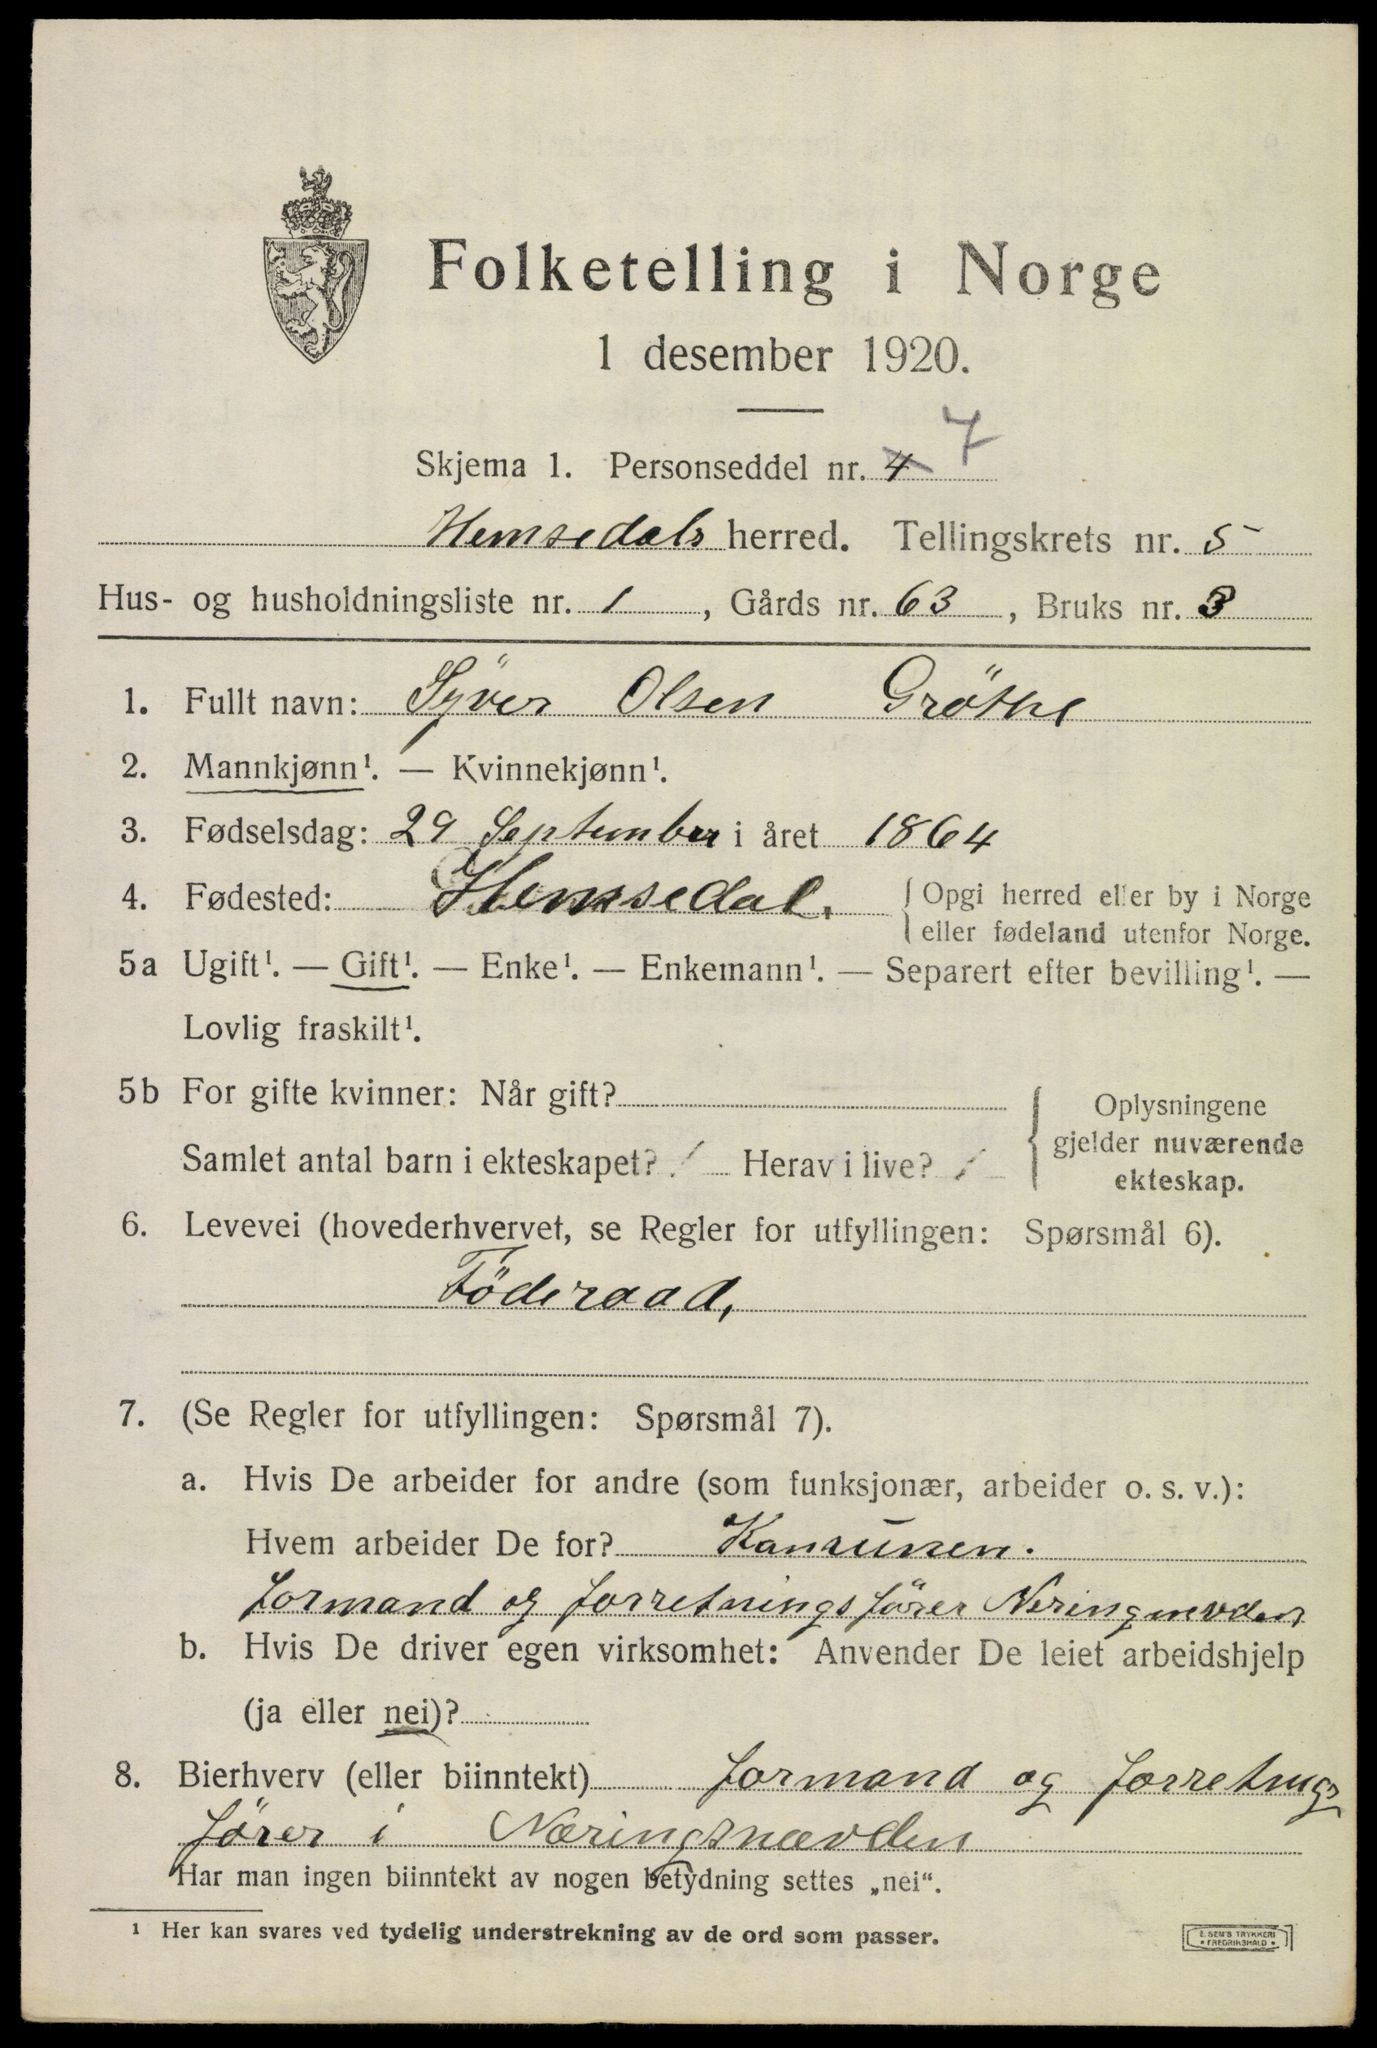 Folketelling i Norge
1 desember 1920.
Skjema 1. Personseddel nr. 4 7
Hemsedals herred. Tellingskrets nr. 5
Hus- og husholdningsliste nr. 1, Gårds nr. 63, Bruks nr. 3
1. Fullt navn: Syver Olsen Gröthe
2. Mannkjønn¹. — Kvinnekjønn¹.
3. Fødselsdag: 29 September i året 1864
4. Fødested: Hemsedal. Opgi herred eller by i Norge
eller fødeland utenfor Norge.
5a Ugift¹. — Gift¹. — Enke¹. — Enkemann¹. — Separert efter bevilling¹. —
Lovlig fraskilt¹.
5b For gifte kvinner: Når gift?
Samlet antal barn i ekteskapet? / Herav i live? /
Oplysningene
gjelder nuværende
ekteskap.
6. Levevei (hovederhvervet, se Regler for utfyllingen: Spørsmål 6).
Föderaad,
7. (Se Regler for utfyllingen: Spørsmål 7).
a. Hvis De arbeider for andre (som funksjonær, arbeider o. s. v.):
Hvem arbeider De for?
formand og forretningsfører
b. Hvis De driver egen virksomhet: Anvender De leiet arbeidshjelp
(ja eller nei)?
8. Bierhverv (eller biinntekt) formand og
fører i Næringsnævden
Har man ingen biinntekt av nogen betydning settes „nei“.
¹ Her kan svares ved tydelig understrekning av de ord som passer.
E. SEM'S TRYKKERI
• FREDRIKSHALD •